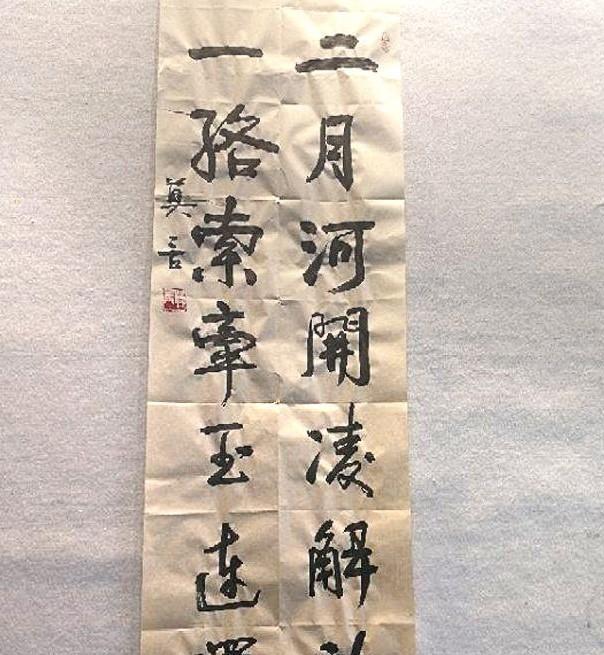 二月河開凌解
一綹索牽玉連
莫言